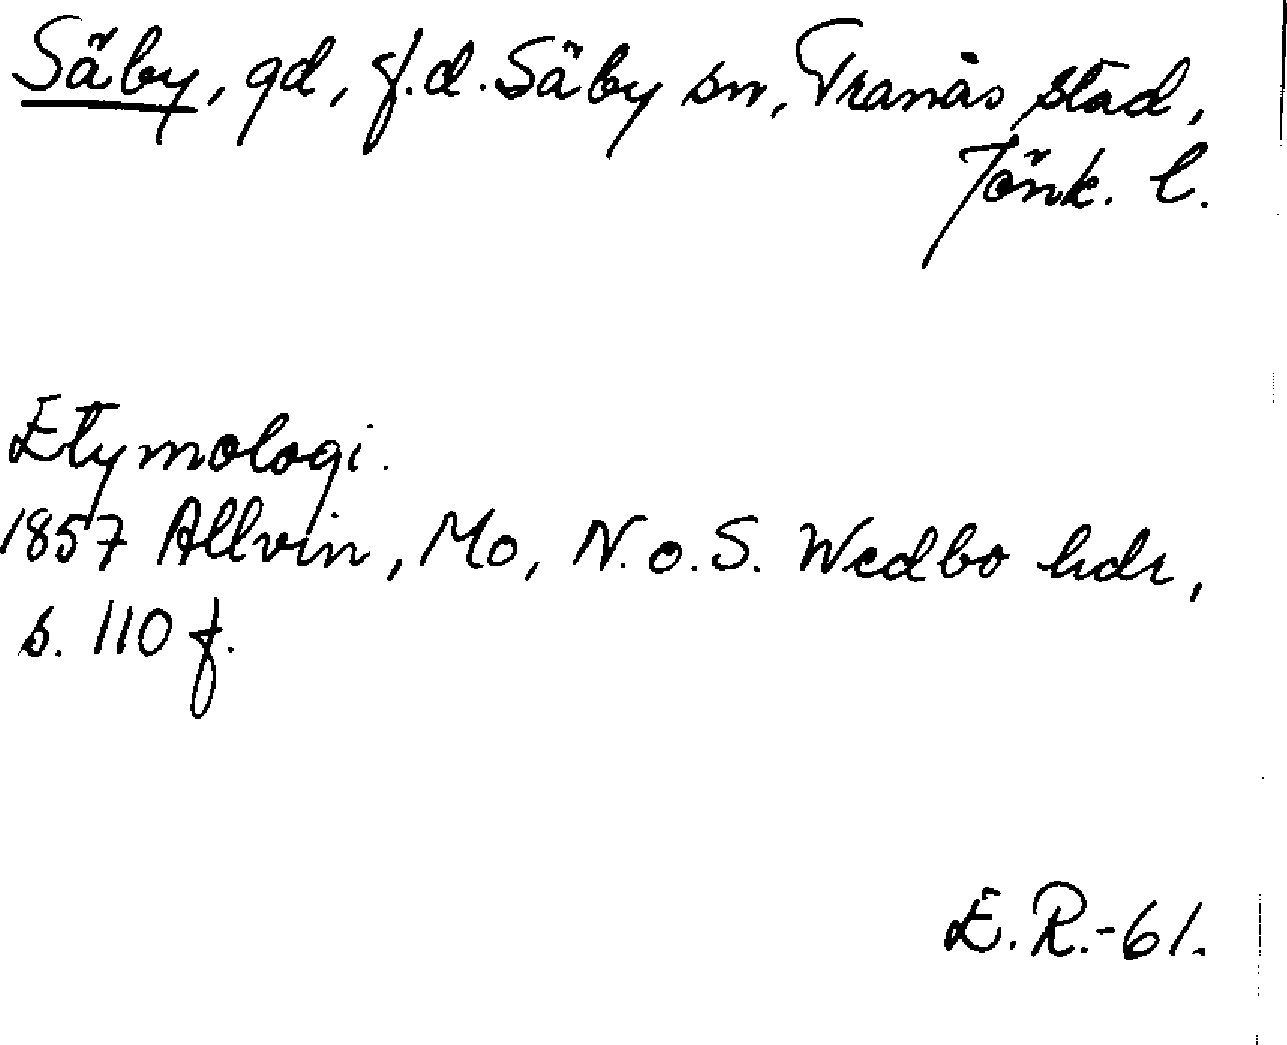 Säby, gd, f.d. Säby sn, Tranås stad,
Jönk. l.
Etymologi.
1857 Allvin, Mo, N. o. S. Wedbo hdr,
s. 110 f.
E. R.-61.